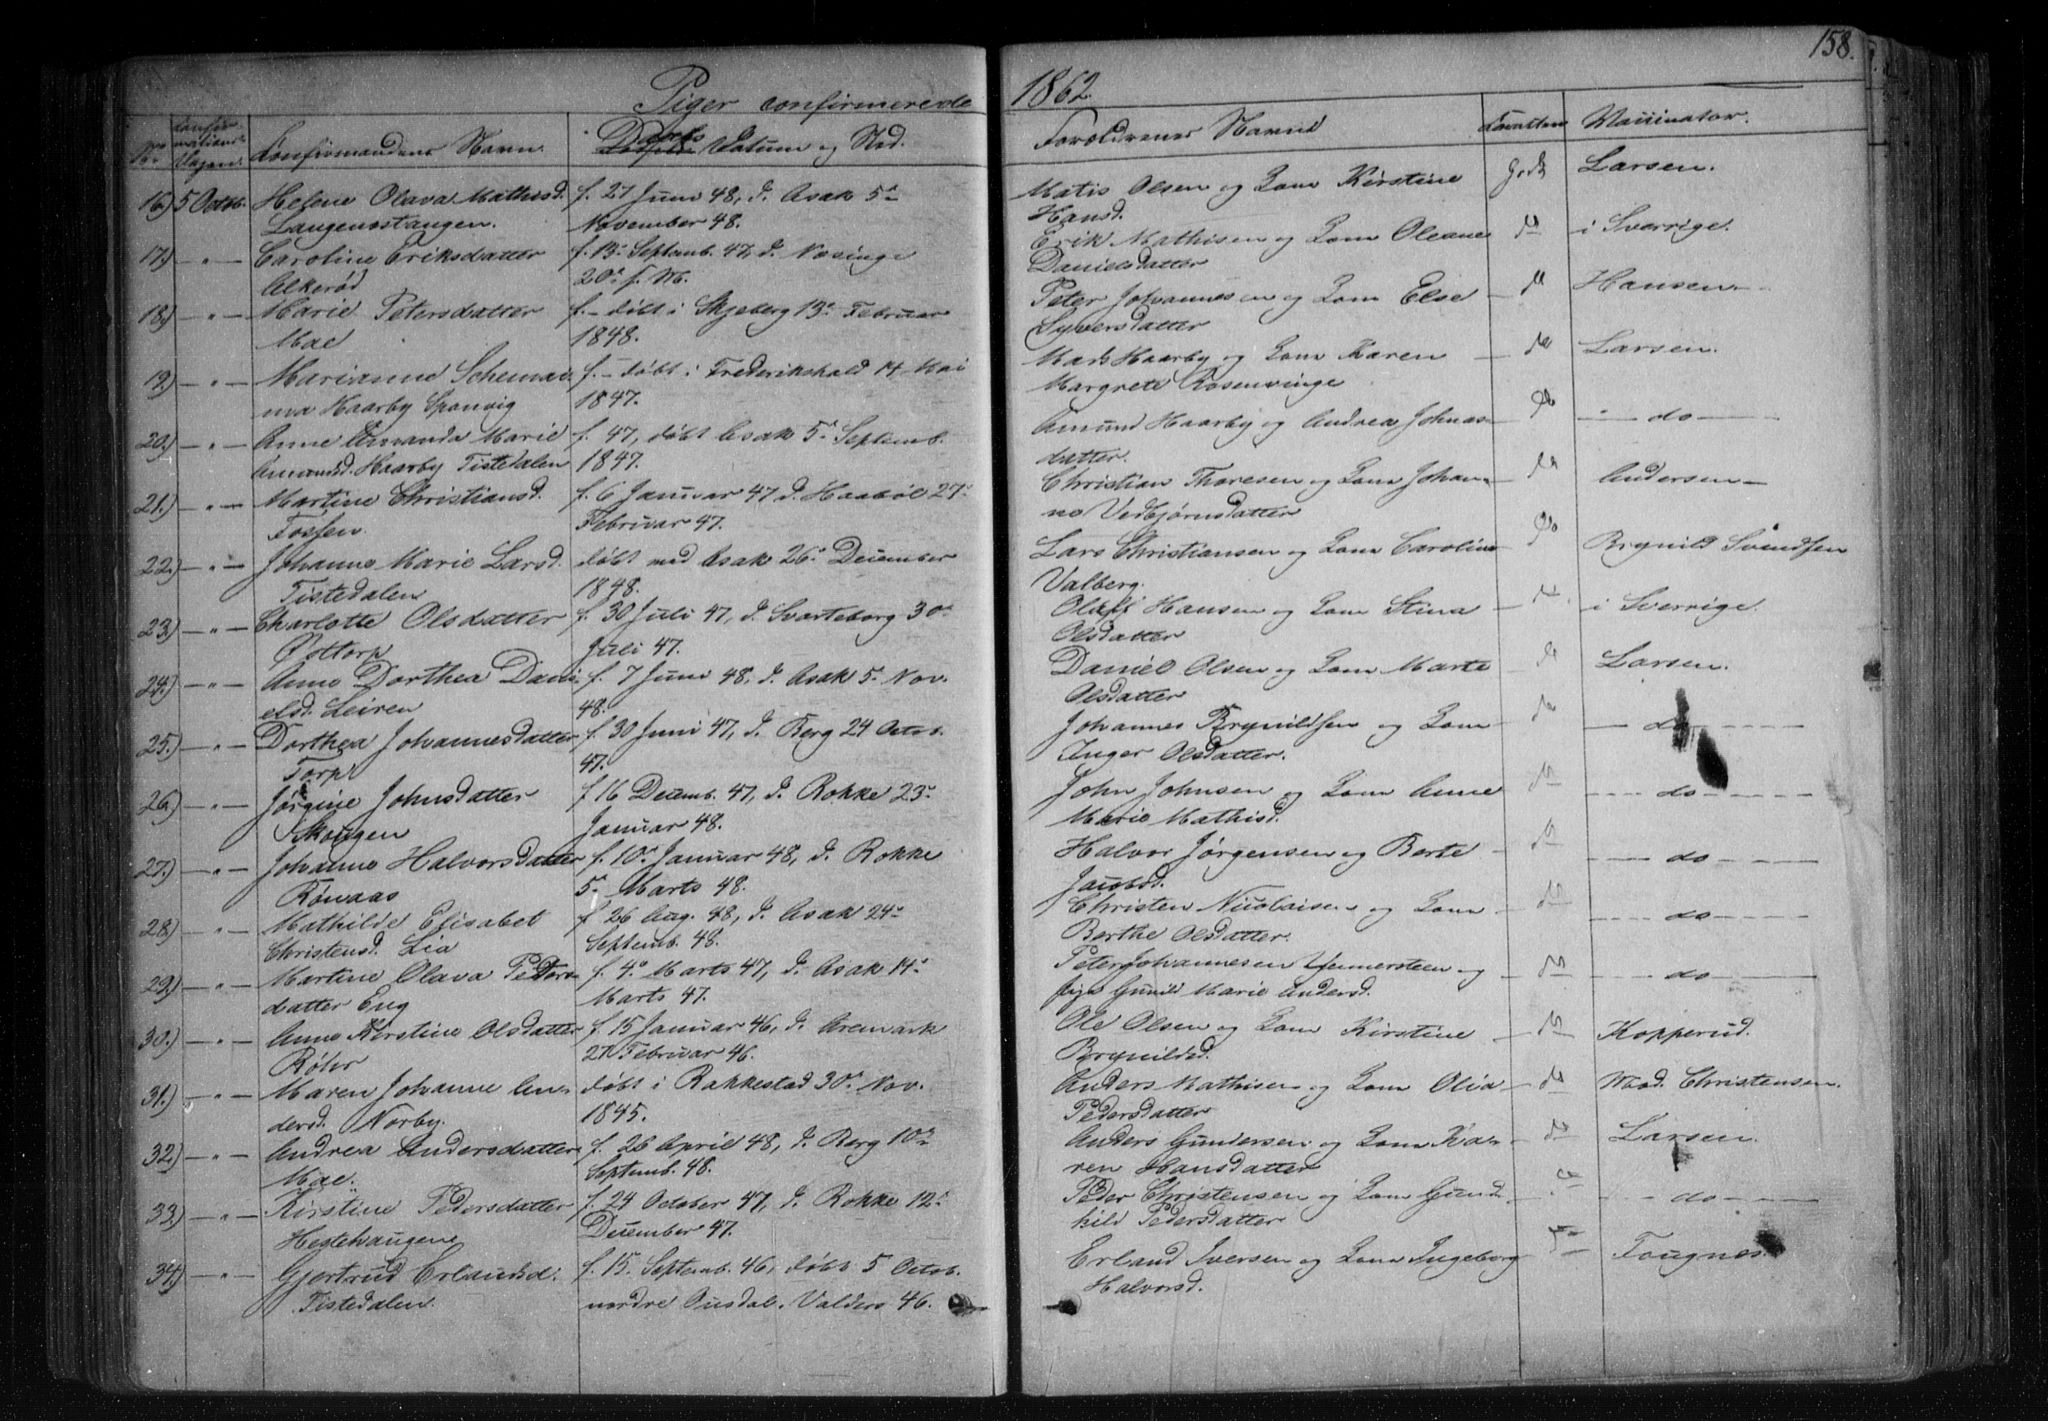 158.
Piger confirmerede 1862.
No Confirmations Dagen. Confirmandens Navn. Daabs Datum og Sted. Forældrenes Navne Vaccinator.
16) 5 Octb. Helene Olava Mathisd. f. 27 Juni 48, d. Asak 5te Matis Olsen og Kone Kirstine godt Larsen.
Langenæstangen. November 48. Hansd.
17) — " — Caroline Eriksdatter f. 13de Septemb. 47, d. Næsinge Erik Mathisen og Kone Oleane do i Sverrige.
Akerød 20de s. M. Danielsdatter
18) — " — Marie Petersdatter f. — døbt i Skjeberg 13de Februar Peter Johannesen og Kone Else — do Hansen —
Mae 1848. Syversdatter
19) — " — Marianne f. — døbt i Frederikshald 14 Mai Mads Haarby og Kone Karen — do Larsen.
Haarby Sponvig 1847. Margrete Rosenvinge
20.) — " — Anne Amanda Marie f. 47, døbt Asak 5te Septemb. Amund Haarby og Andrea Johnas- do — do —
Amundsd. Haarby Tistedalen 1847. datter.
21.) — " — Martine Christiansd. f. 6 Januar 47 d. Haabøl 27de Christian Thoresen og Kone Johan- do Andersen —
Fossen. Februar 47. ne Vebjørnsdatter
22.) — " — Johanne Marie Larsd. døbt med Asak 26de December Lars Christiansen og Kone Caroline do Brynild Svendsen
Tistedalen 1848. Valberg.
23.) — " — Charlotte Olsdatter f. 30 Juli 47, d. Svarteborg 30te Olaff Hansen og Kone Stina — do i Sverrige.
Juli 47. Olsdatter
24.) — " — Anne Dorthea Dani- f. 7 Juni 48, d. Asak 5te Nov. Daniel Olsen og Kone Marte do Larsen.
elsd. Leiren 48. Olsdatter
25.) — " — Dorthea Johannesdatter f. 30 Juni 47, d. Berg 24 Octob. Johannes Brynildsen og Kone — do — do —
Torp 47. Inger Olsdatter.
26.) — " — Jørgine Johnsdatter f 16 Decemb. 47, d. Rokke 23de John Johnsen og Kone Anne do — do —
Skougen Januar 48. Marie Mathisd.
27.) — " — Johanne Halvorsdatter f. 10de Januar 48, d. Rokke Halvor Jørgensen og Berte — do — do —
Rønaas 5te Marts 48. Jacobsd.
28.) — " — Mathilde Elisabet f 26 Aug. 48, d. Asak 24de Christen Nicolaisen og Kone — do — do —
Christensd. Lia Septemb. 48. Berthe Olsdatter.
29.) — " — Martine Olava Peders- f. 4de Marts 47, d. Asak 14de Peter Johannesen og do — do —
datter Eng Marts 47. pige Gunild Marie Andersd.
30.) — " — Anne Kirstine Olsdatter f. 15 Januar 46, d. Aremark Ole Olsen og Kone Kirstine — do Kopperud.
Røhr 21 Februar 46. Brynildsd.
31.) — " — Maren Johanne An- døbt i Rakkestad 30te Nov. Anders Mathisen og Kone Olia — do Christensen.
dersd. Norby. 1845. Pedersdatter
32.) — " — Andrea Andersdatter f. 26 April 48, d. Berg 10de Anders Gundersen og Kone Ka- — do Larsen.
Mae. Septemb. 48. ren Hansdatter
33.) — " — Kirstine Pedersdatter f. 24 October 47, d. Rokke 12te Peder Christensen og Kone Gund- do — do —
Hestehaugene December 47. hild Pedersdatter
34.) — " — Gjertrud Erlandsd. f. 15. Septemb. 46, døbt 5 Octob. Erland Iversen og Kone Ingeborg do Fougnes.
Tistedalen. nordre Ousdal. Valders 46. Halvorsd.